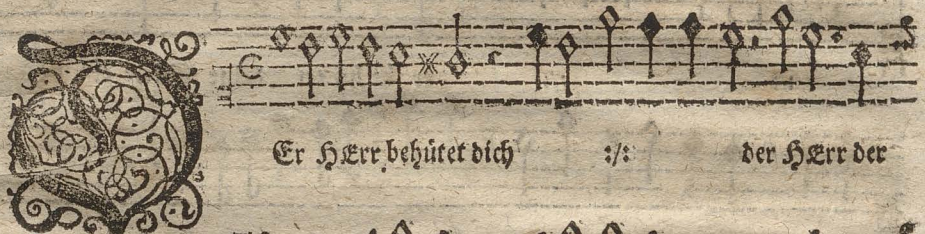 DEr HErr behütet dich :/: der HErr der